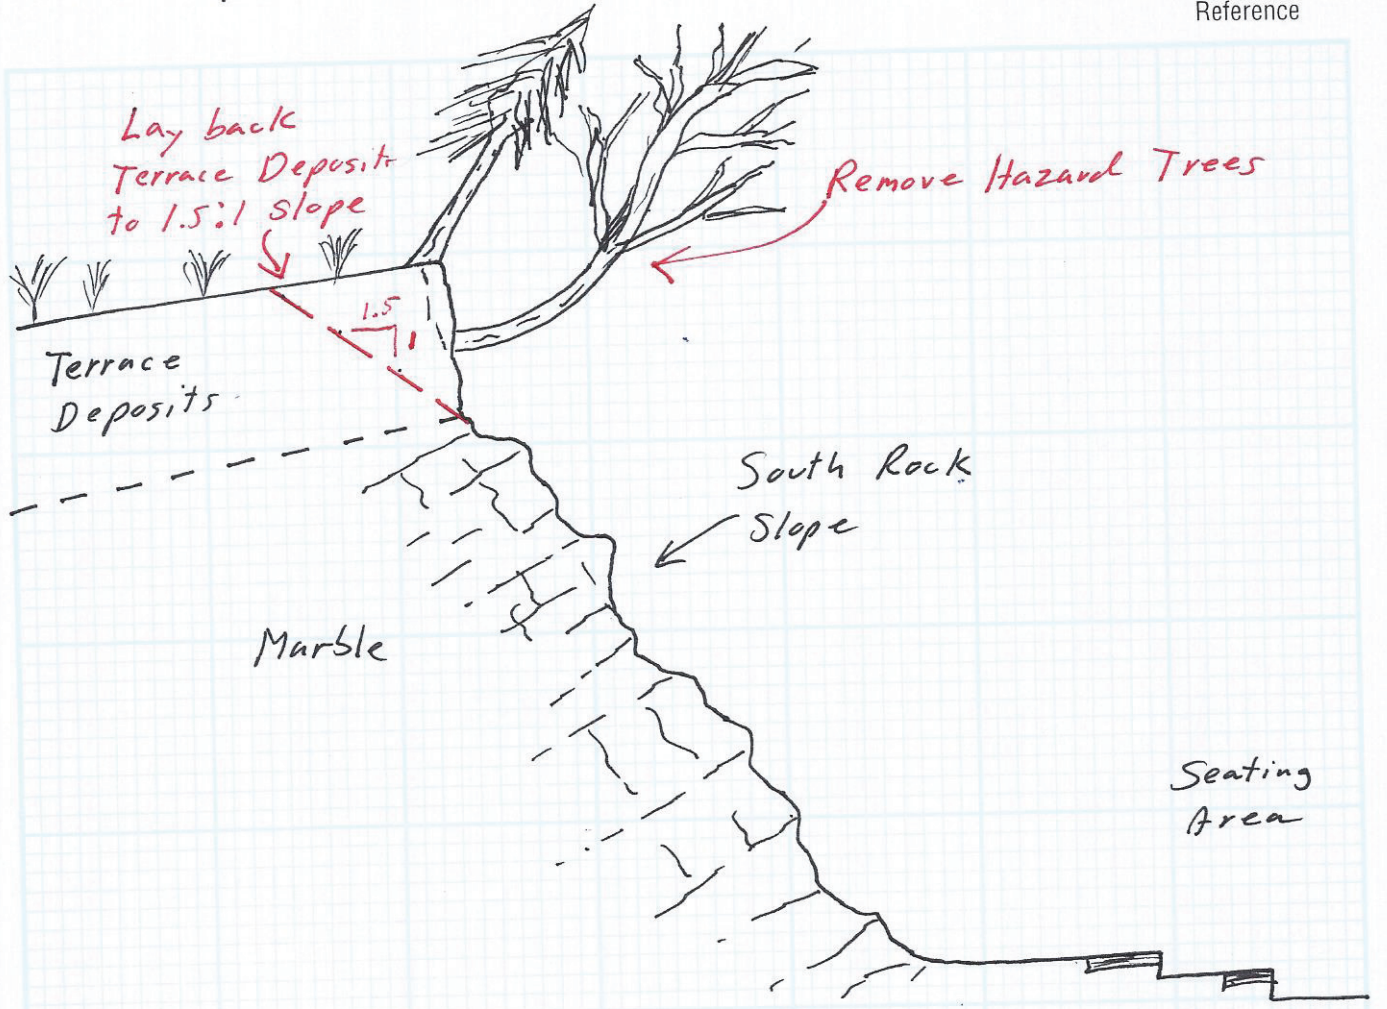 Reference
Lay back
Terrace Deposits
to 1.5:1 slope
Remove Hazard Trees
1.5
1
Terrace
Deposits
South Rock
Slope
Marble
Seating
Area